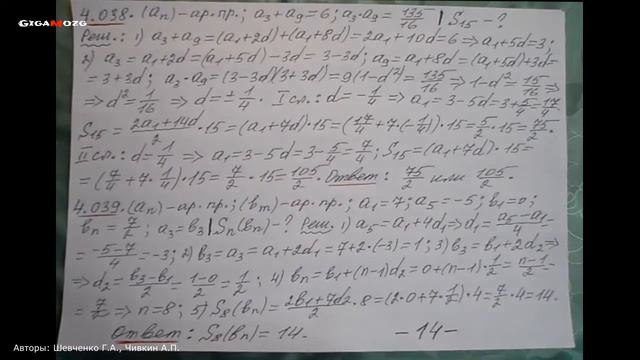 GIGAMOZG
4.038. (aₙ)-ар.пр.; a₃+a₉=6; a₃·a₉=135/16 | S₁₅-?
Реш.: 1) a₃+a₉=(a₁+2d)+(a₁+8d)=2a₁+10d=6⇒a₁+5d=3;
2) a₃=a₁+2d=(a₁+5d)-3d=3-3d; a₉=a₁+8d=(a₁+5d)+3d=
=3+3d; a₃·a₉=(3-3d)(3+3d)=9(1-d²)=135/16⇒1-d²=15/16⇒
⇒d²=1/16⇒d=±1/4. I сл.: d=-1/4⇒a₁=3-5d=3+5/4=17/4
S₁₅=(2a₁+14d)/2·15=(a₁+7d)·15=(17/4+7·(-1/4))·15=5/2·15=75/2.
II сл.: d=1/4⇒a₁=3-5d=3-5/4=7/4; S₁₅=(a₁+7d)·15=
=(7/4+7·1/4)·15=7/2·15=105/2. Ответ: 75/2 или 105/2.
4.039. (aₙ)-ар.пр.; (bₘ)-ар.пр.; a₁=7; a₅=-5; b₁=0;
bₙ=7/2; a₃=b₃ | Sₙ(bₙ)-? Реш. 1) a₅=a₁+4d₁⇒d₁=(a₅-a₁)/4=
=(-5-7)/4=-3; 2) b₃=a₃=a₁+2d₁=7+2·(-3)=1; 3) b₃=b₁+2d₂⇒
⇒d₂=(b₃-b₁)/2=(1-0)/2=1/2; 4) bₙ=b₁+(n-1)d₂=0+(n-1)·1/2=(n-1)/2=
=7/2⇒n=8; 5) S₈(bₙ)=(2b₁+7d₂)/2·8=(2·0+7·1/2)·4=7/2·4=14.
Ответ: S₈(bₙ)=14. -14-
Авторы: Шевченко Г.А., Чивкин А.П.